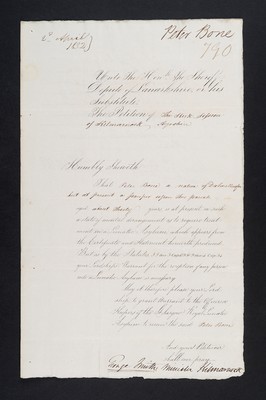 Peter Bone
790
Unto The Honble The Sheriff
Depute of Lanarkshire, or his
Substitute.
The Petition of The Kirk Session
of Kilmarnock, Ayrshire
Humbly Sheweth
That Peter Bone a native of
but at present a pauper upon the parish
aged about thirty years, is at present in such
a state of mental derangement as to require treat-
ment in a Lunatic Asylum, which appears from
the Certificate and Statement herewith produced.
But as by the Statutes
your Lordship's Warrant for the reception of any person
into a Lunatic Asylum is necessary
May it therefore please your Lord-
ship to grant Warrant to the Governor
Keeper of the Glasgow Royal Lunatic
Asylum to receive the said Peter Bone
And your Petitioner
shall ever pray.
Minister Kilmarnock